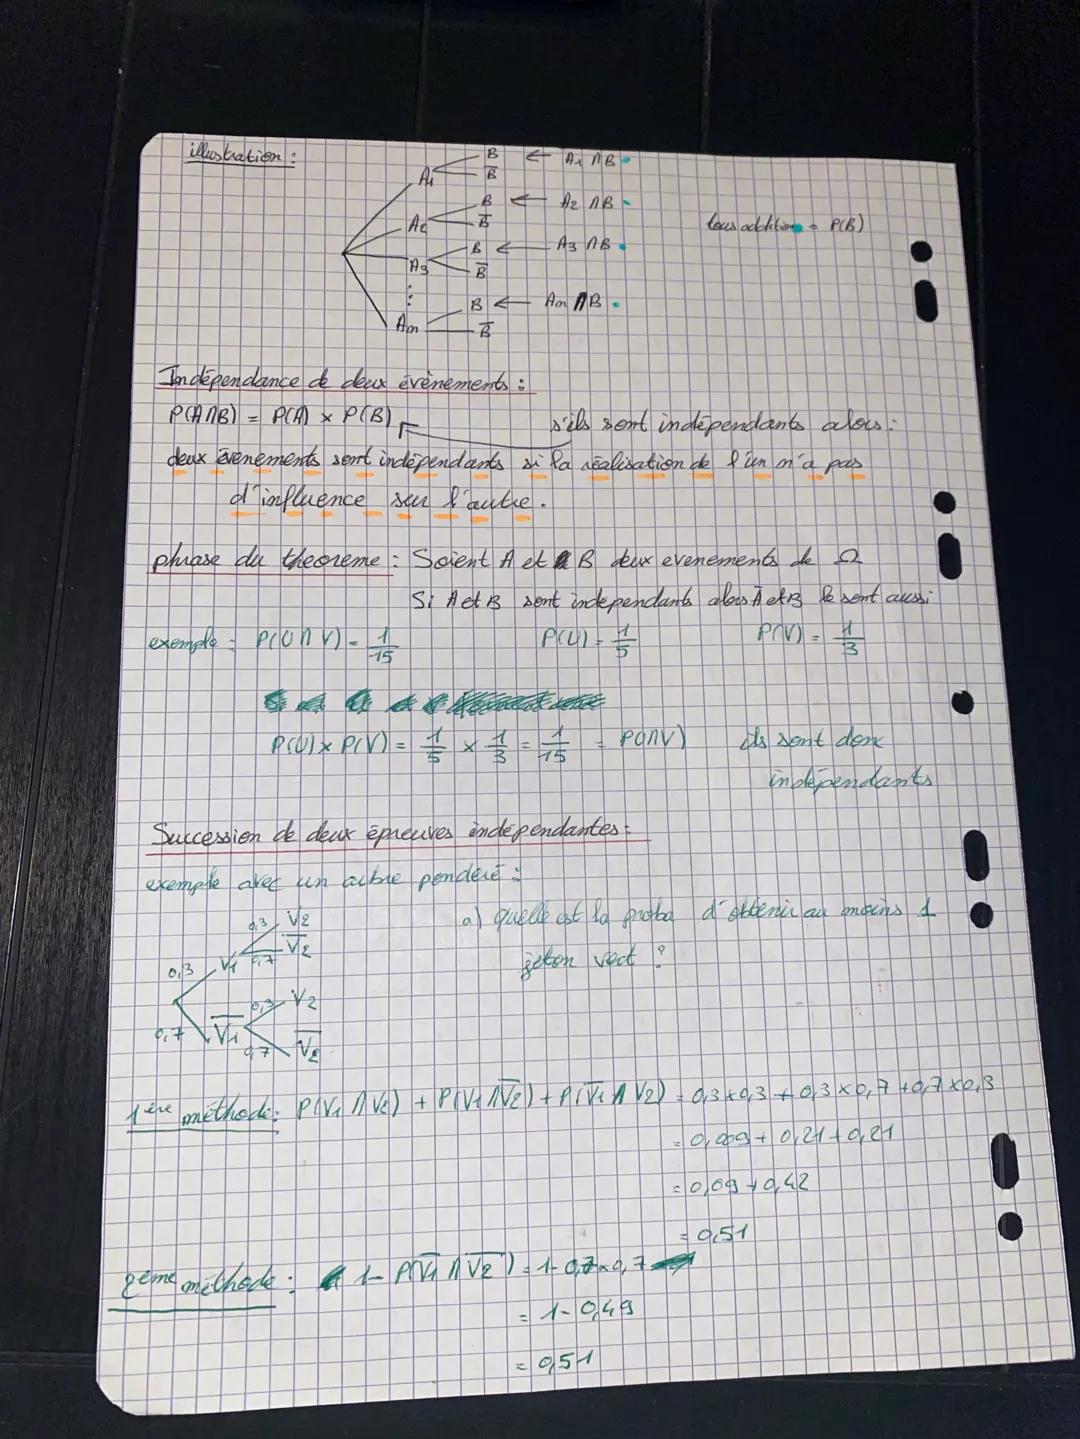 illustration :
B ← A1 ∩ B
A1
B̅
B ← A2 ∩ B
A2
B̅
tous addition = P(B)
B ← A3 ∩ B
A3
B̅
⋮
B ← An ∩ B
An
B̅
Indépendance de deux évènements :
P(A∩B) = P(A) × P(B)
s'ils sont indépendants alors :
deux évenements sont indépendants si la réalisation de l'un n'a pas
d'influence sur l'autre.
phrase du theoreme : Soient A et B deux evenements de Ω
Si A et B sont independants alors A̅ et B le sont aussi
exemple : P(U∩V) = 1/15 P(U) = 1/5 P(V) = 1/3
P(U) × P(V) = 1/5 × 1/3 = 1/15 = P(U∩V) ils sont donc
indépendants
Succession de deux épreuves indépendantes :
exemple avec un arbre pondéré :
a) quelle est la proba d'obtenir au moins 1
jeton vert ?
0,3 V2
0,3 V1 0,7 V̅2
0,3 V2
0,7 V̅1 0,7 V̅2
1ère méthode : P(V1 ∩ V2) + P(V1 ∩ V̅2) + P(V̅1 ∩ V2) = 0,3×0,3 + 0,3×0,7 + 0,7×0,3
= 0,09 + 0,21 + 0,21
= 0,09 + 0,42
= 0,51
2ème méthode : 1 - P(V̅1 ∩ V̅2) = 1 - 0,7×0,7
= 1 - 0,49
= 0,51